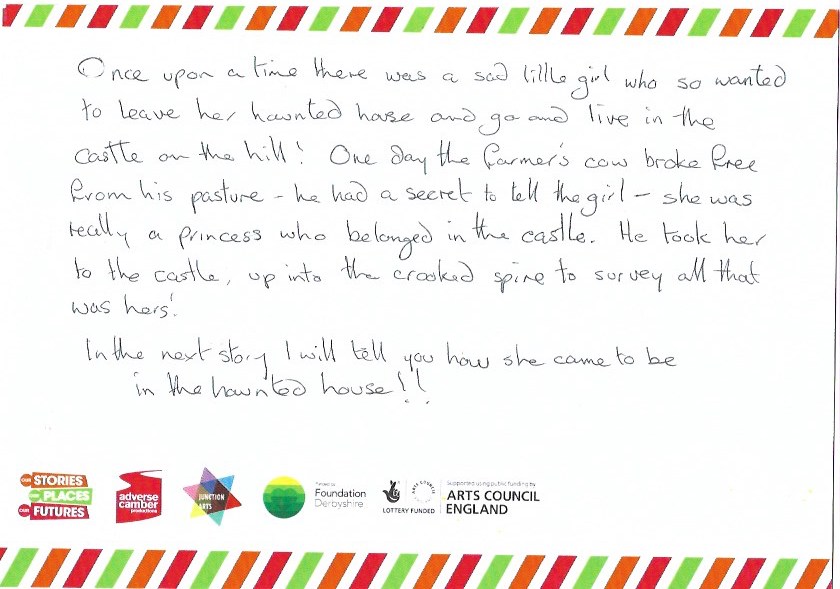 Once upon a time there was a sad little girl who so wanted
to leave her haunted house and go and live in the
castle on the hill! One day the farmer's cow broke free
from his pasture - he had a secret to tell the girl - she was
really a princess who belonged in the castle. He took her
to the castle, up into the crooked spire to survey all that
was hers!
In the next story I will tell you how she came to be
in the haunted house!!
OUR STORIES
OUR PLACES
OUR FUTURES
adverse
camber
productions
JUNCTION
ARTS
Foundation
Derbyshire
LOTTERY FUNDED
ARTS COUNCIL
Supported using public funding by
ARTS COUNCIL
ENGLAND